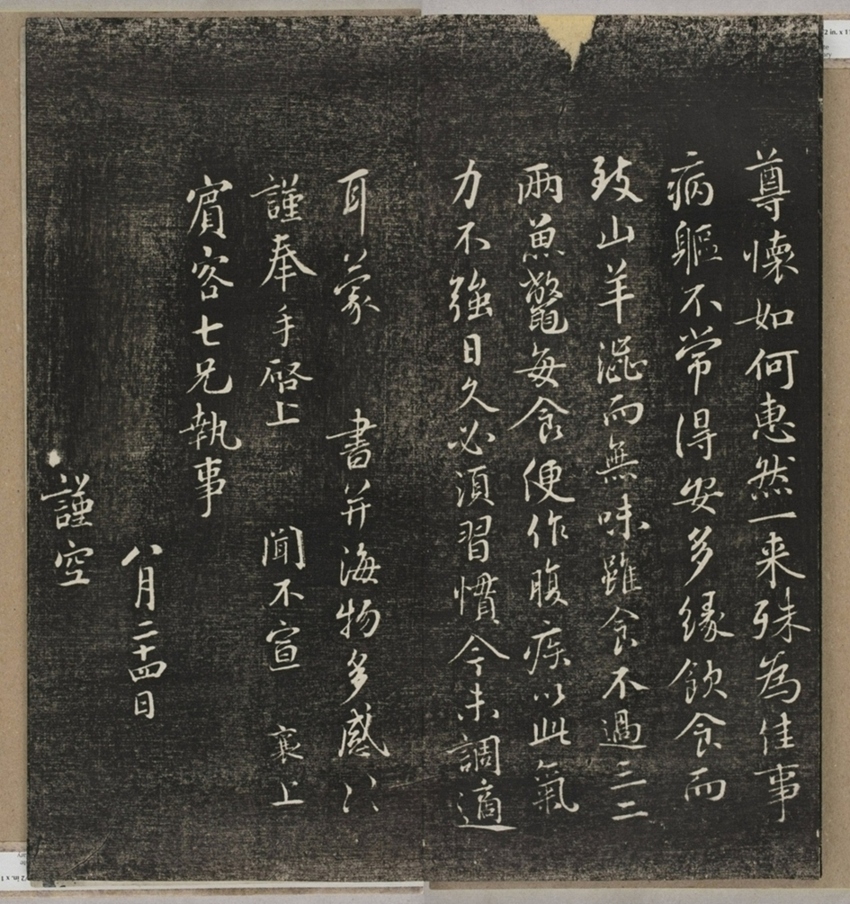 尊懷如何惠然一来殊為佳事
病軀不常得安多緣飲食而
致山羊澁而無味雖食不過三二
兩魚鼈每食便作腹疾以此氣
力不強日久必須習慣今未調適
耳蒙 書并海物多感〻
謹奉手啓上 聞不宣 襄上
賓客七兄執事
八月二十四日
謹空